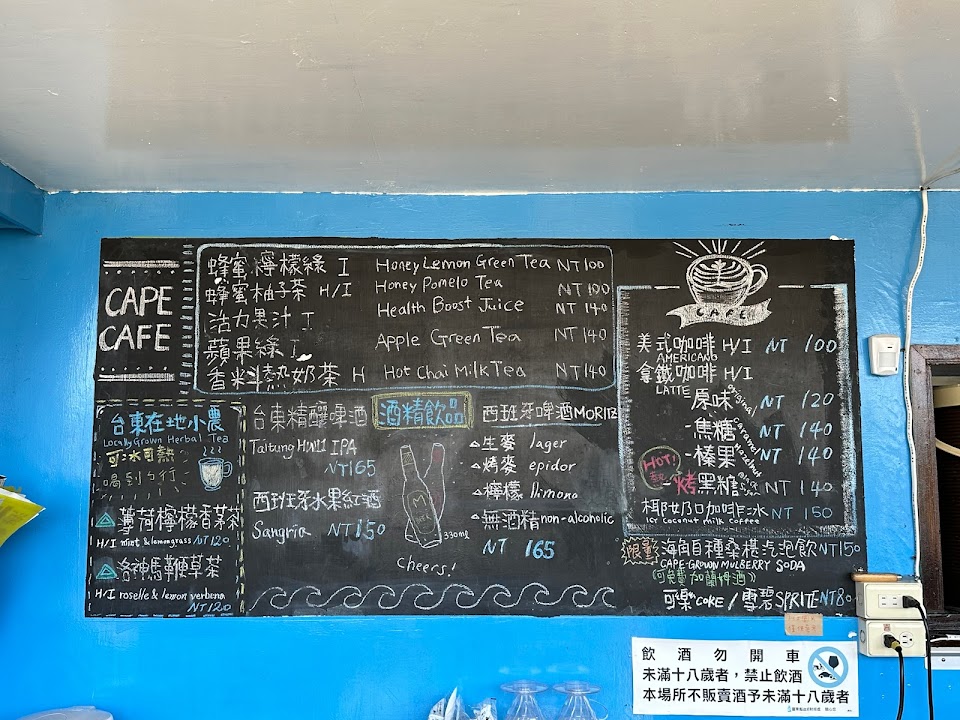 CAPE
CAFE
蜂蜜檸檬綠 I Honey Lemon Green Tea NT 100
蜂蜜柚子茶 H/I Honey Pomelo Tea NT 100
活力果汁 I Health Boost Juice NT 140
蘋果綠 I Apple Green Tea NT 140
香料熱奶茶 H Hot Chai Milk Tea NT 140
台東在地小農
Locally Grown Herbal Tea
可冰可熱
喝到ㄅ行
薄荷檸檬香茅茶
H/I mint & lemongrass NT 120
洛神馬鞭草茶
H/I roselle & lemon verbena
NT 120
台東精釀啤酒
Taitung HWII IPA
NT165
西班牙水果紅酒
Sangria NT 150
酒精飲品
330ml
Cheers!
西班牙啤酒MORITZ
生麥 lager
烤麥 epidor
檸檬 llimona
無酒精 non-alcoholic
NT 165
CAFE
美式咖啡 H/I NT 100
AMERICANO
拿鐵咖啡 H/I
LATTE
原味 original NT 120
-焦糖 Caramel NT 140
-榛果 Hazelnut NT 140
HOT!
烤黑糖 NT 140
椰奶咖啡冰 NT 150
ICY Coconut milk coffee
限量 海角自種桑椹汽泡飲 NT150
CAPE-GROWN MULBERRY SODA
(可免費加蘭姆酒)
可樂 COKE / 雪碧 SPRITE NT80
飲酒勿開車
未滿十八歲者，禁止飲酒
本場所不販賣酒予未滿十八歲者